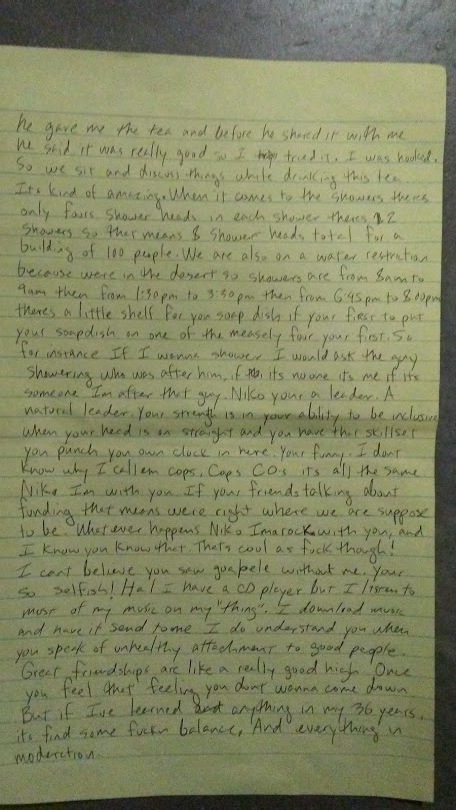 he gave me the tea and before he shared it with me
he said it was really good so I tried it. I was hooked.
So we sit and discuss things while drinking this tea
Its kind of amazing. When it comes to the showers theres
only fours shower heads in each shower theres 2
showers so that means 8 shower heads total for a
building of 100 people. We are also on a water restriction
because were in the desert so showers are from 8am to
9am then from 1:30pm to 3:30pm then from 6:45pm to 8:00pm
theres a little shelf for you soap dish if your first to put
your soapdish on one of the measely four your first. So
for instance If I wanna shower I would ask the guy
showering who was after him, if its no one its me if its
someone Im after that guy. Niko your a leader. A
natural leader. Your strength is in your ability to be inclusive
when your head is on straight and you have that skillset
you punch you own clock in here. Your funny. I dont
know why I call em cops. Cops COs its all the same
Niko Im with you. If your friends talking about
funding that means were right where we are suppose
to be. Whatever happens Niko Imarock with you, and
I know you know that. That's cool as fuck though!
I cant believe you saw goapele without me. Your
so selfish! Ha! I have a CD player but I listen to
most of my music on my "thing". I download music
and have it send to me. I do understand you when
you speak of unhealthy attachment to good people.
Great friendships are like a really good high. Once
you feel that feeling you dont wanna come down
But if Ive learned anything in my 36 years,
its find some fuckn balance, And everything in
moderation.